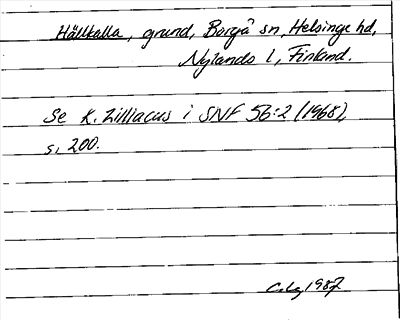 Hällkalla, grund, Borgå sn, Helsinge hd,
Nylands l, Finland.
Se K. Zilliacus i SNF 56:2 (1968),
s. 200.
1987